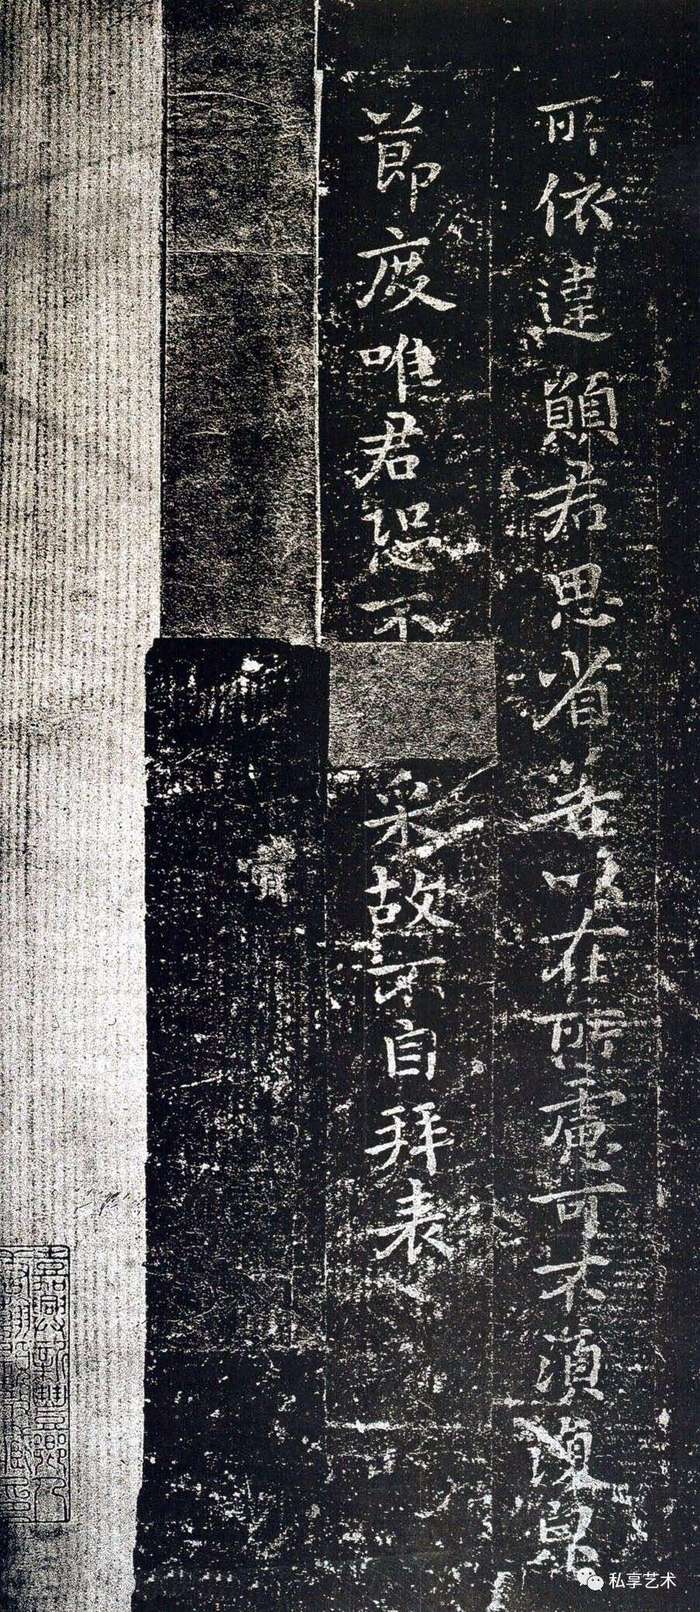 所依違願君思省若以在所慮可不須復皃
節度唯君恐不采故不自拜表
私享艺术